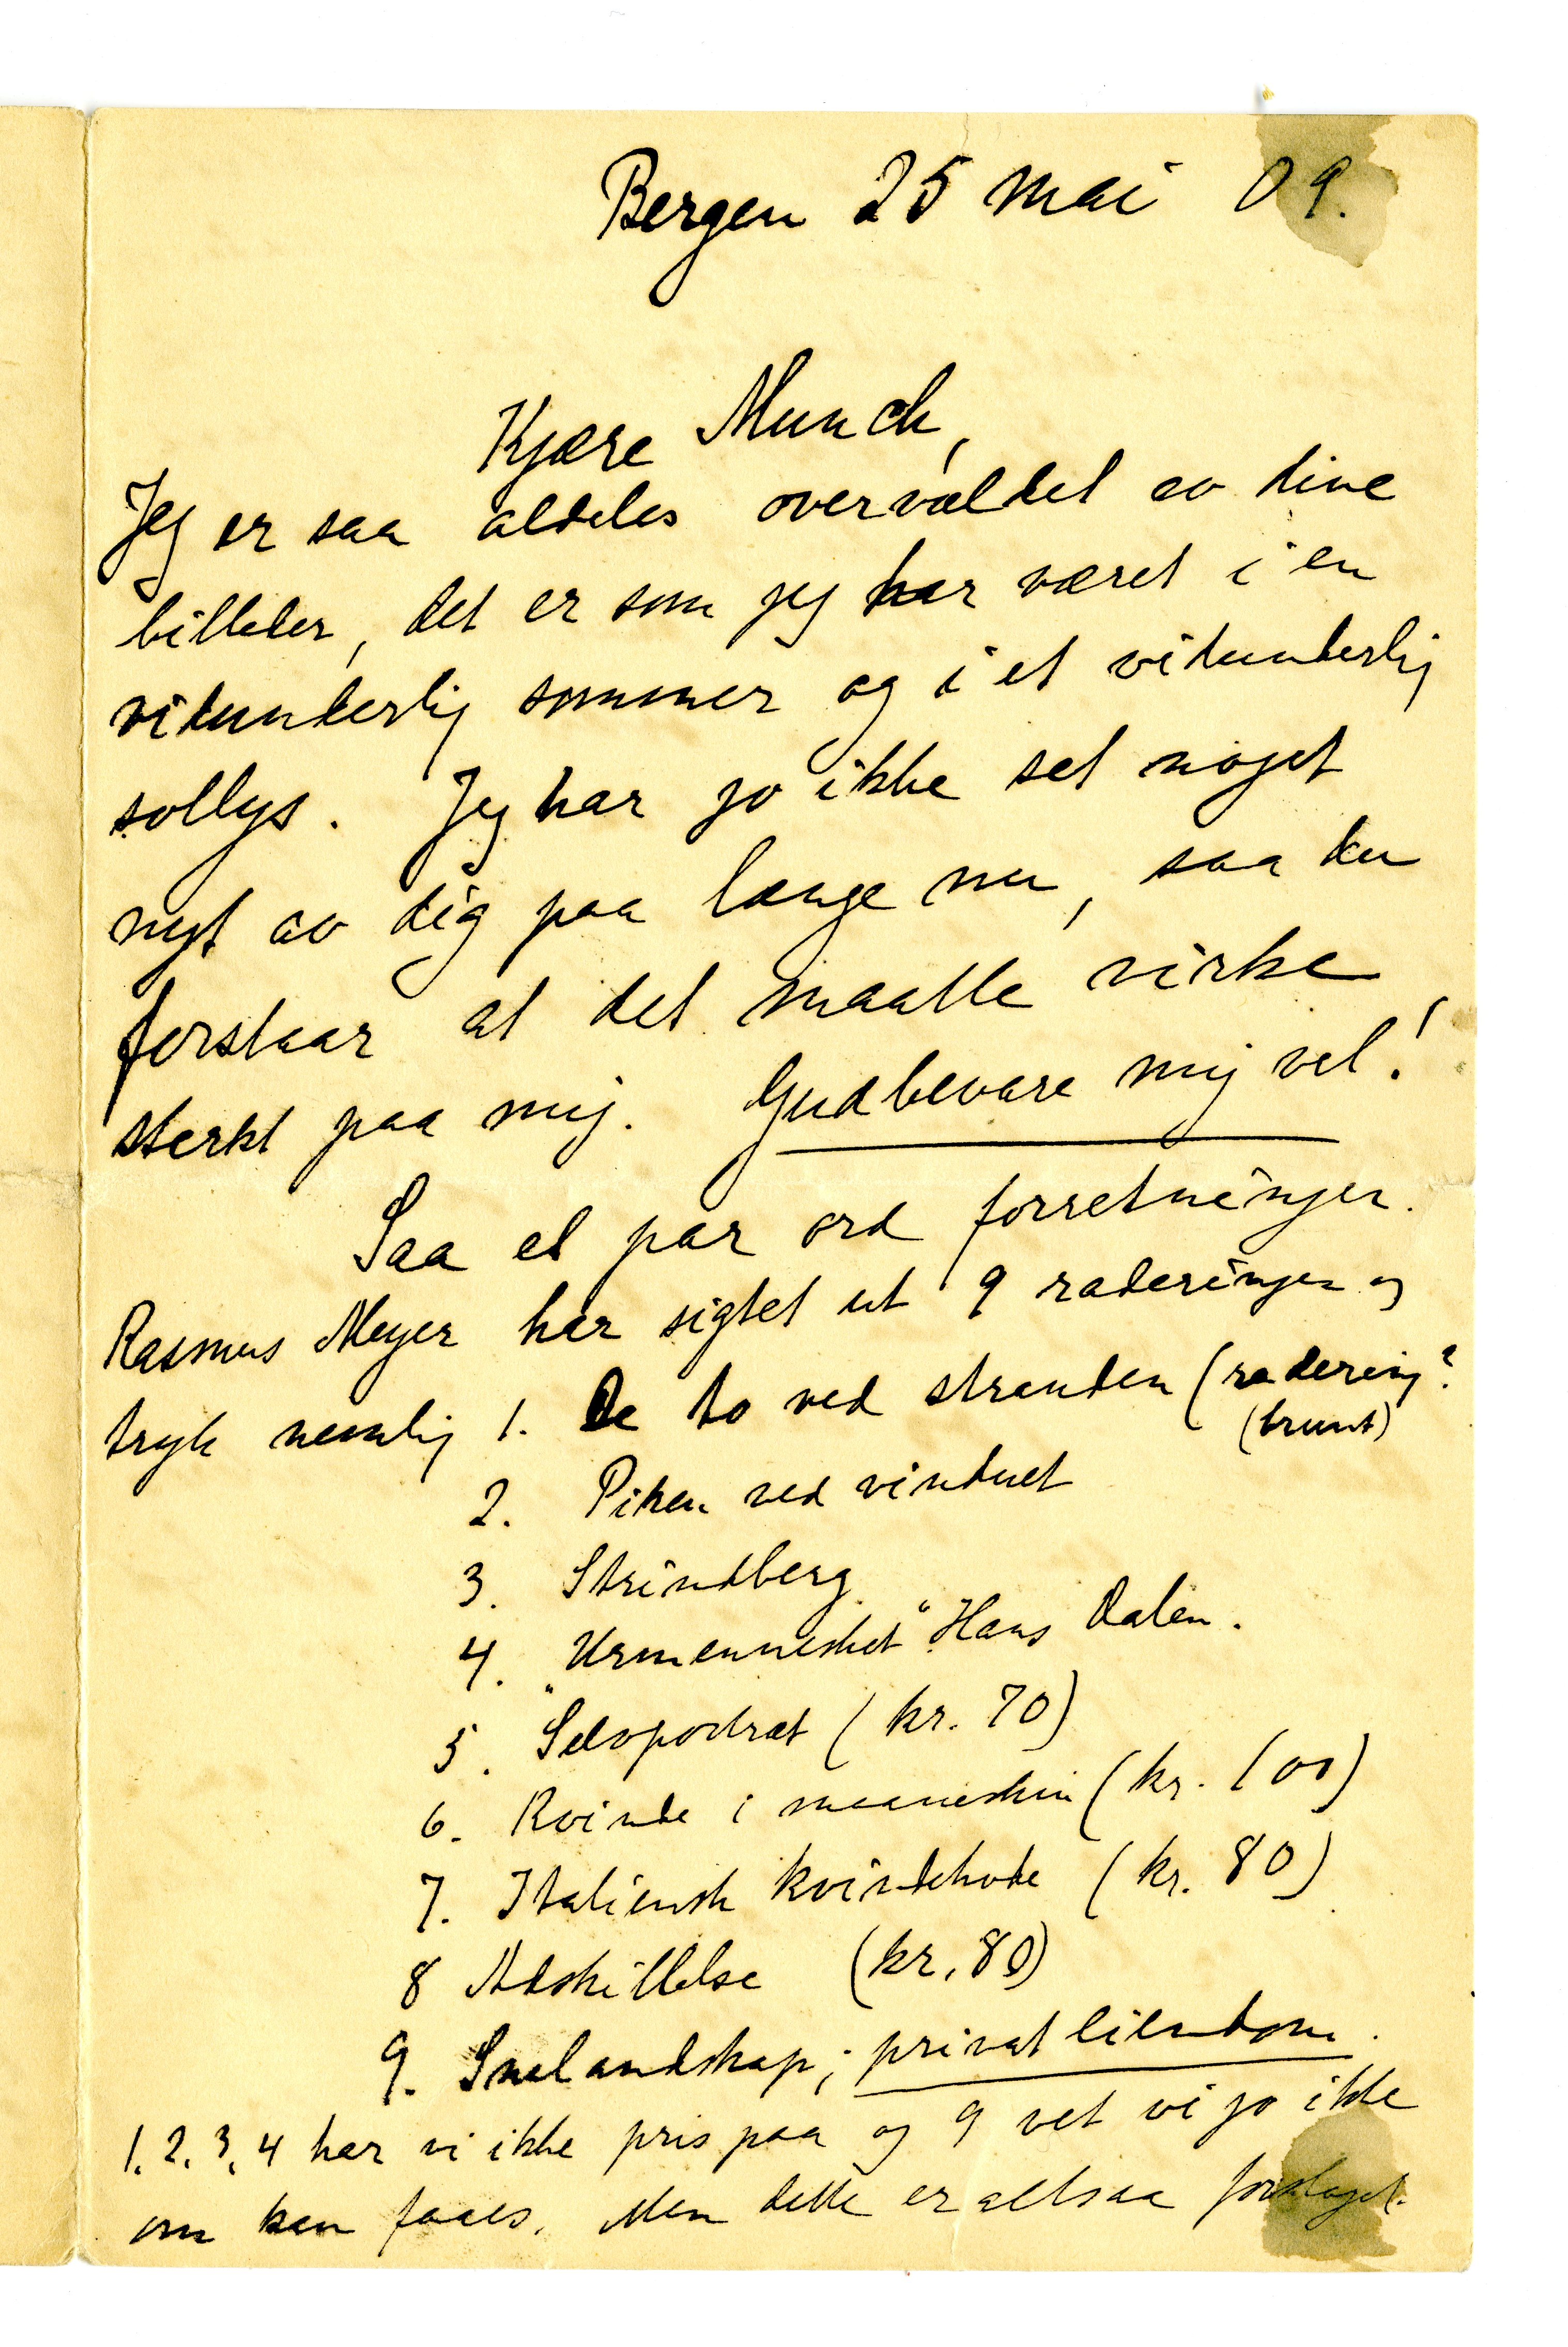 Bergen 25 mai 09.
Kjære Munch,
Jeg er saa aldeles overvældet av dine
billeder, det er som jeg har været i en
vidunderlig sommer og i et vidunderlig
sollys. Jeg har jo ikke set noget
nyt av dig paa længe nu, saa du
forstaar at det maatte virke
sterkt paa mig. Gudbevare mig vel!
Saa et par ord forretninger.
Rasmus Meyer har sigtet ut 9 raderinger og
tryk nemlig 1. De to ved stranden (radering?
(brunt)
2. Piken ved vinduet
3. Strindberg
4. "Urmennesket" Hans Dalen.
5. Selvportræt (kr. 70)
6. Kvinde i maaneskin (kr. 100)
7. Italiensk kvindehode (kr. 80)
8 Adskillelse (kr. 80)
9. Snelandskap; privat eiendom.
1. 2. 3. 4 har vi ikke pris paa og 9 vet vi jo ikke
om kan faaes. Men dette er altsaa forslaget.